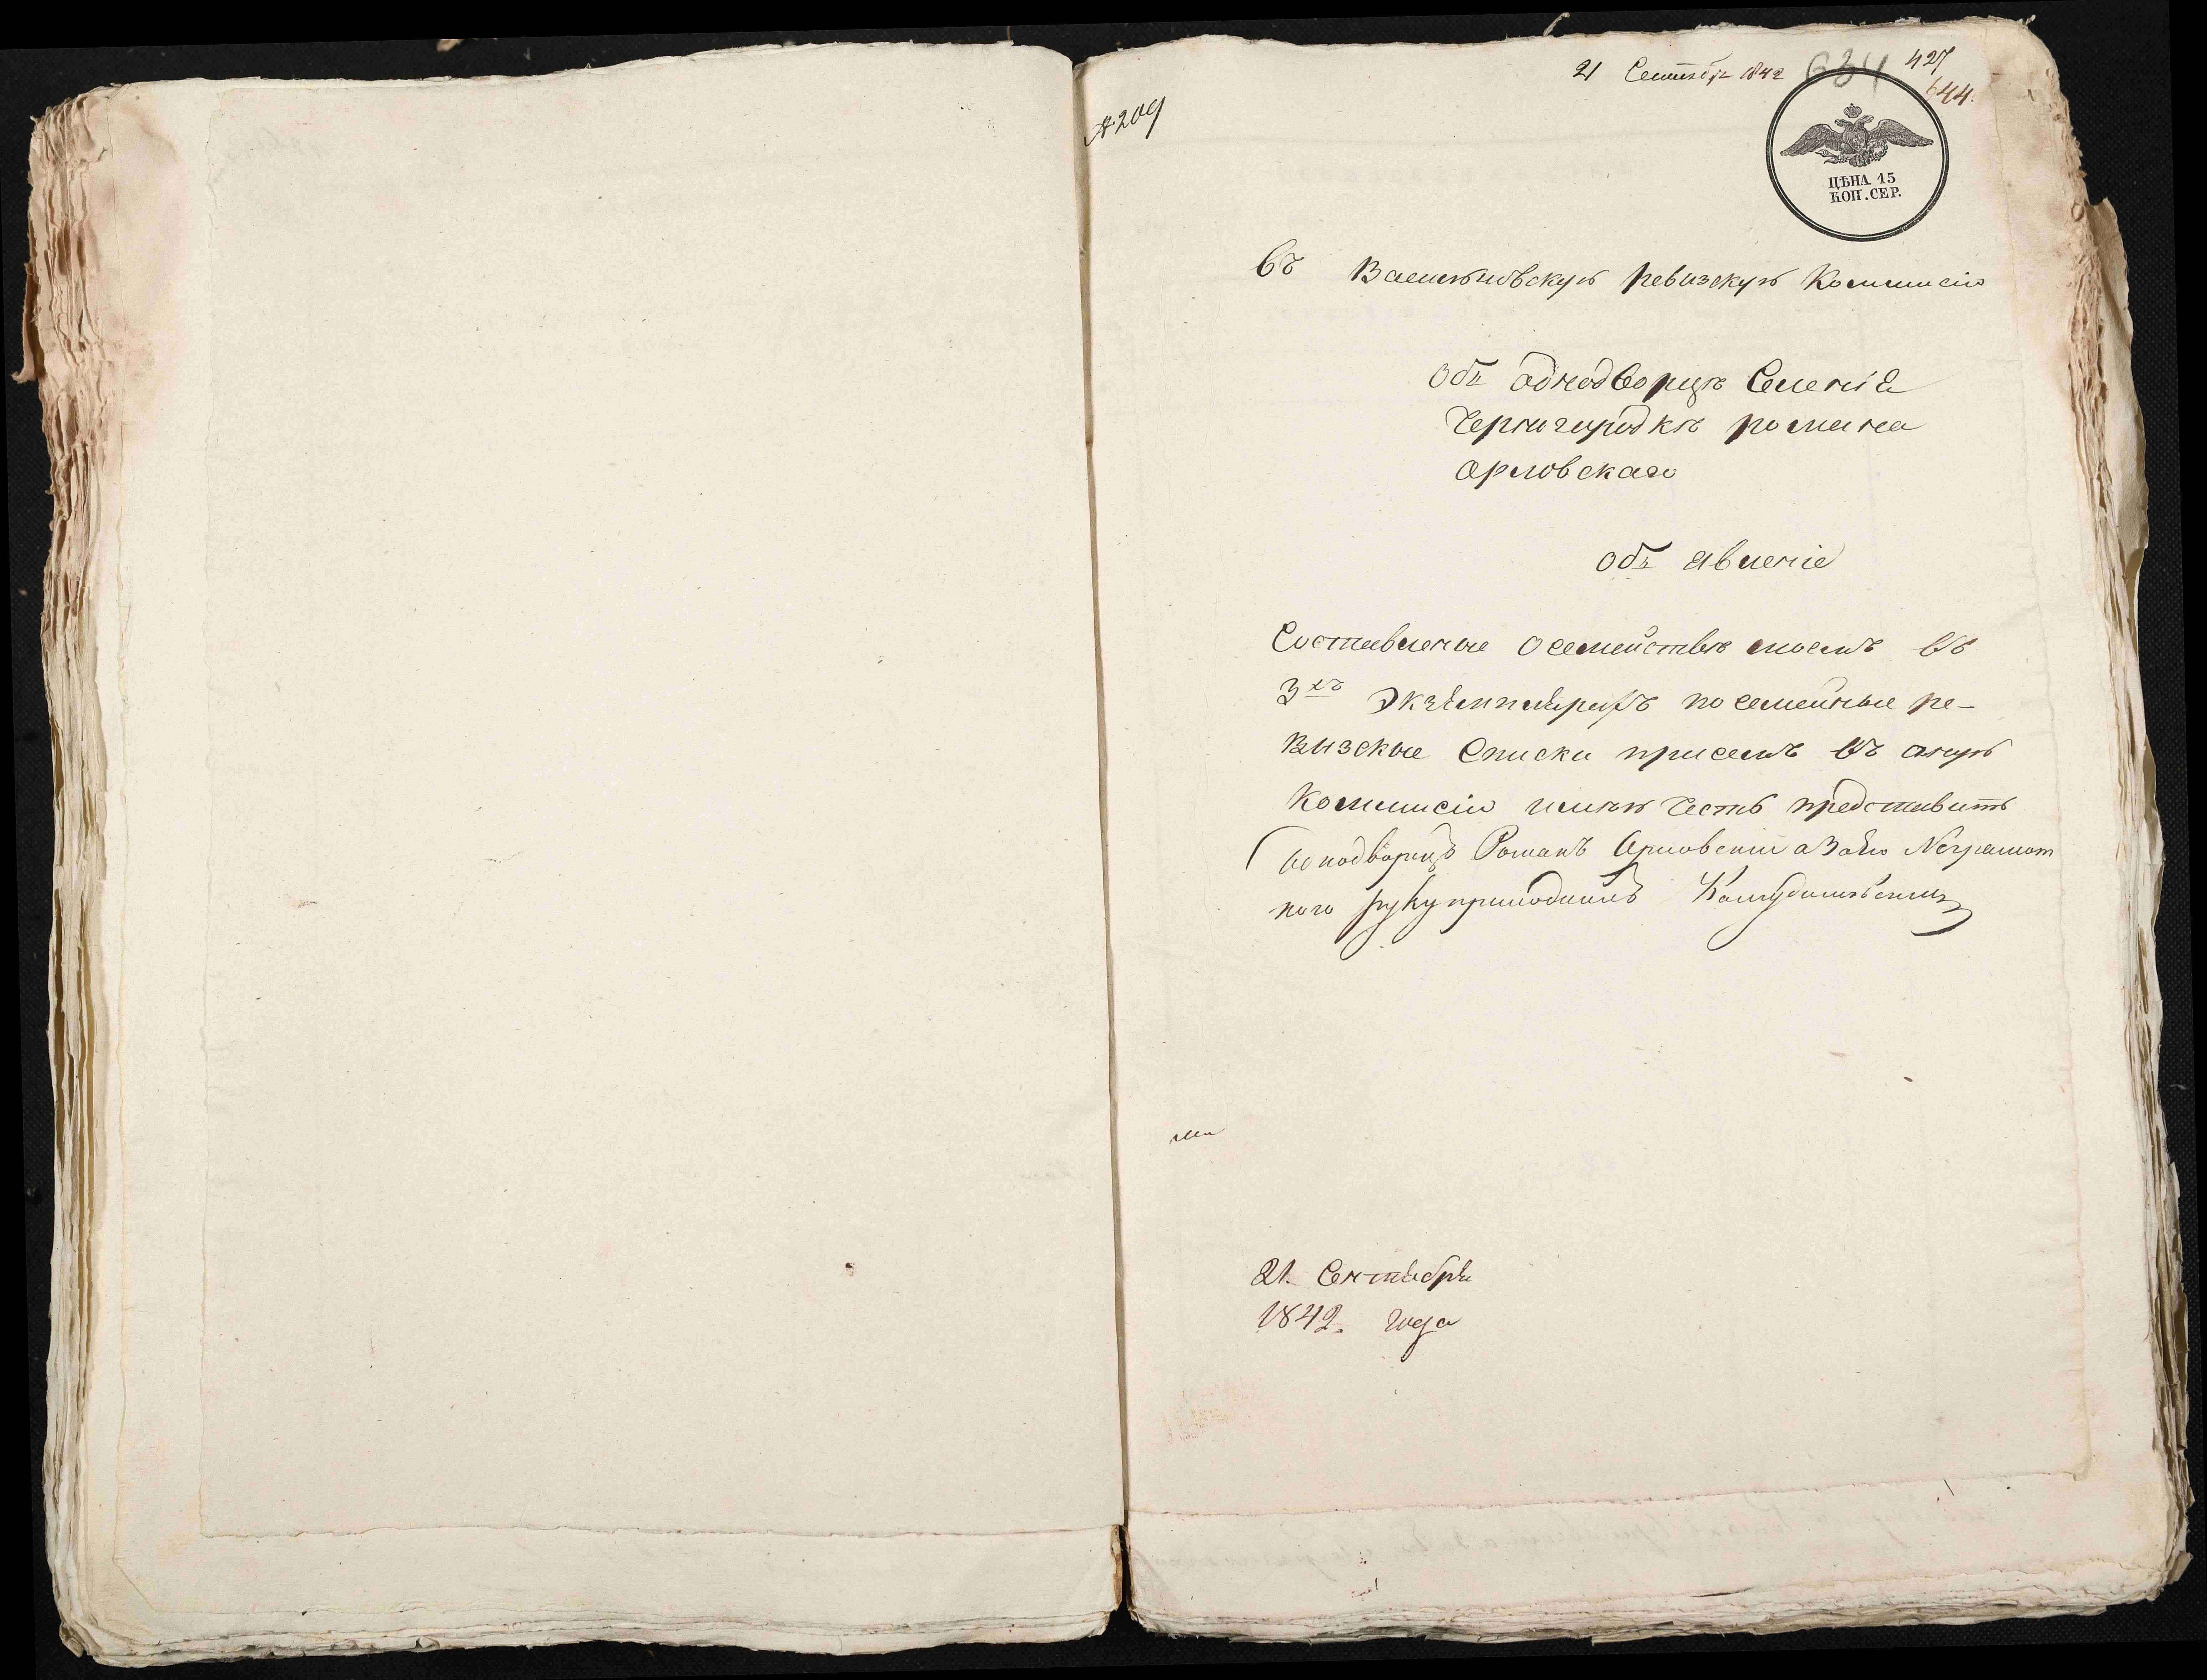 21 Сентября 1842 634 427
644.
№ 209
ЦѢНА 15
КОП. СЕР.
Въ Васильковскую ревизскую Коммисію
Отъ Однодворца Селенія
Черногородки романа
Орловскаго
Объ явленіе
Составленые о семействѣ моемъ въ
3хъ Экземплярахъ посемейные ре-
визские Списки присемъ въ оную
Коммисію имѣю Честь представить
Однодворецъ Романъ Орловскій а За его Неграмот
ного руку приложилъ
21. Сентября
1842. года